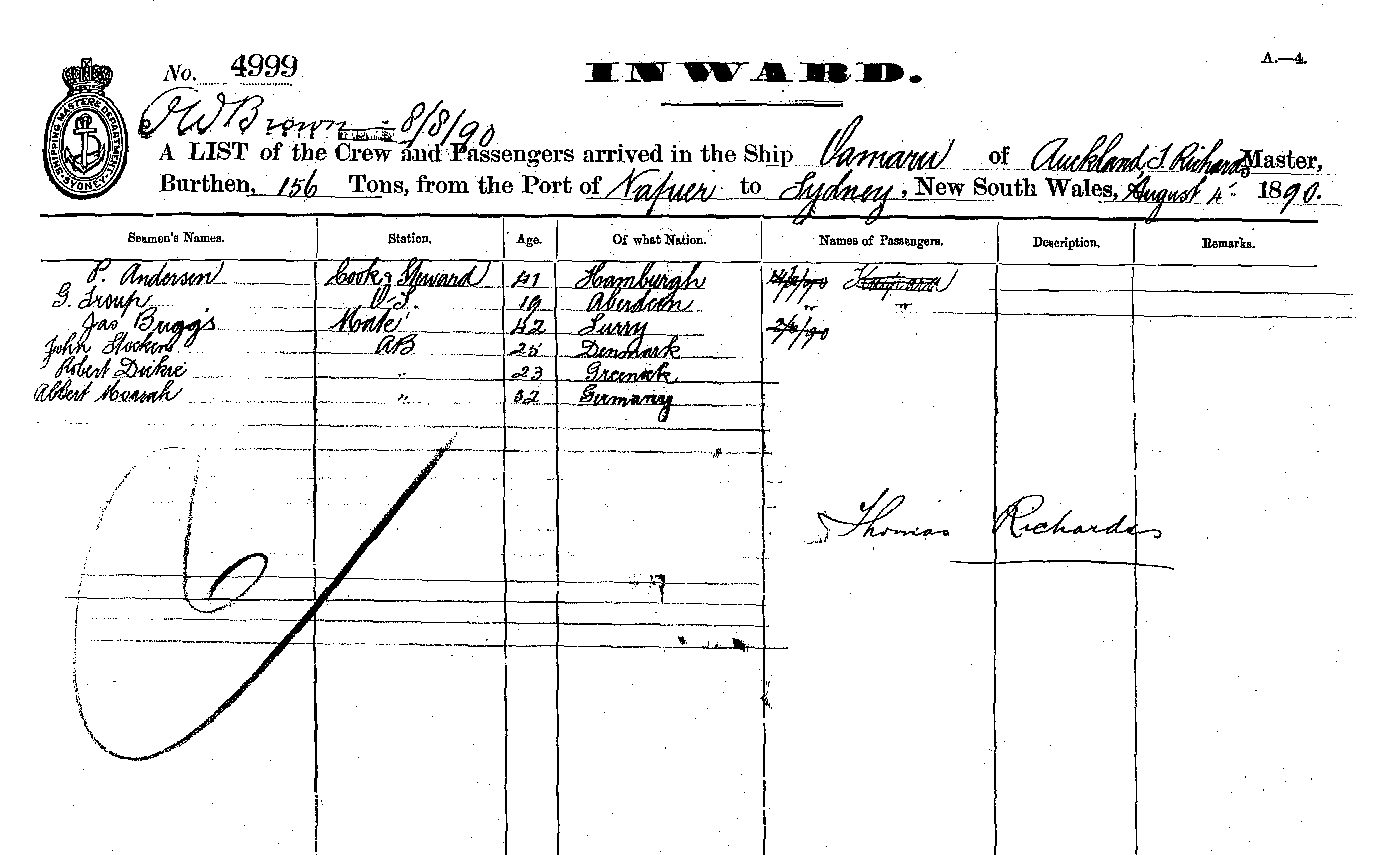 No. 4999 INWARD. A.—4.
SHIPPING MASTERS DEPARTMENT SYDNEY
Brown 8/8/90
A LIST of the Crew and Passengers arrived in the Ship Oamaru of Auckland, T Richards Master,
Burthen, 156 Tons, from the Port of Napier to Sydney, New South Wales, August 4 1890.
Seamen's Names. Station. Age. Of what Nation. Names of Passengers. Description. Remarks.
P. Andersen Cook & Steward 41 Hamburgh
G. Troup O.S. 19 Aberdeen
Jas Buggs Mate 42 Surry
John Stockens AB 25 Denmark
Robert Dickie " 23 Greenock
Albert " 32 Germany
6
Thomas Richards